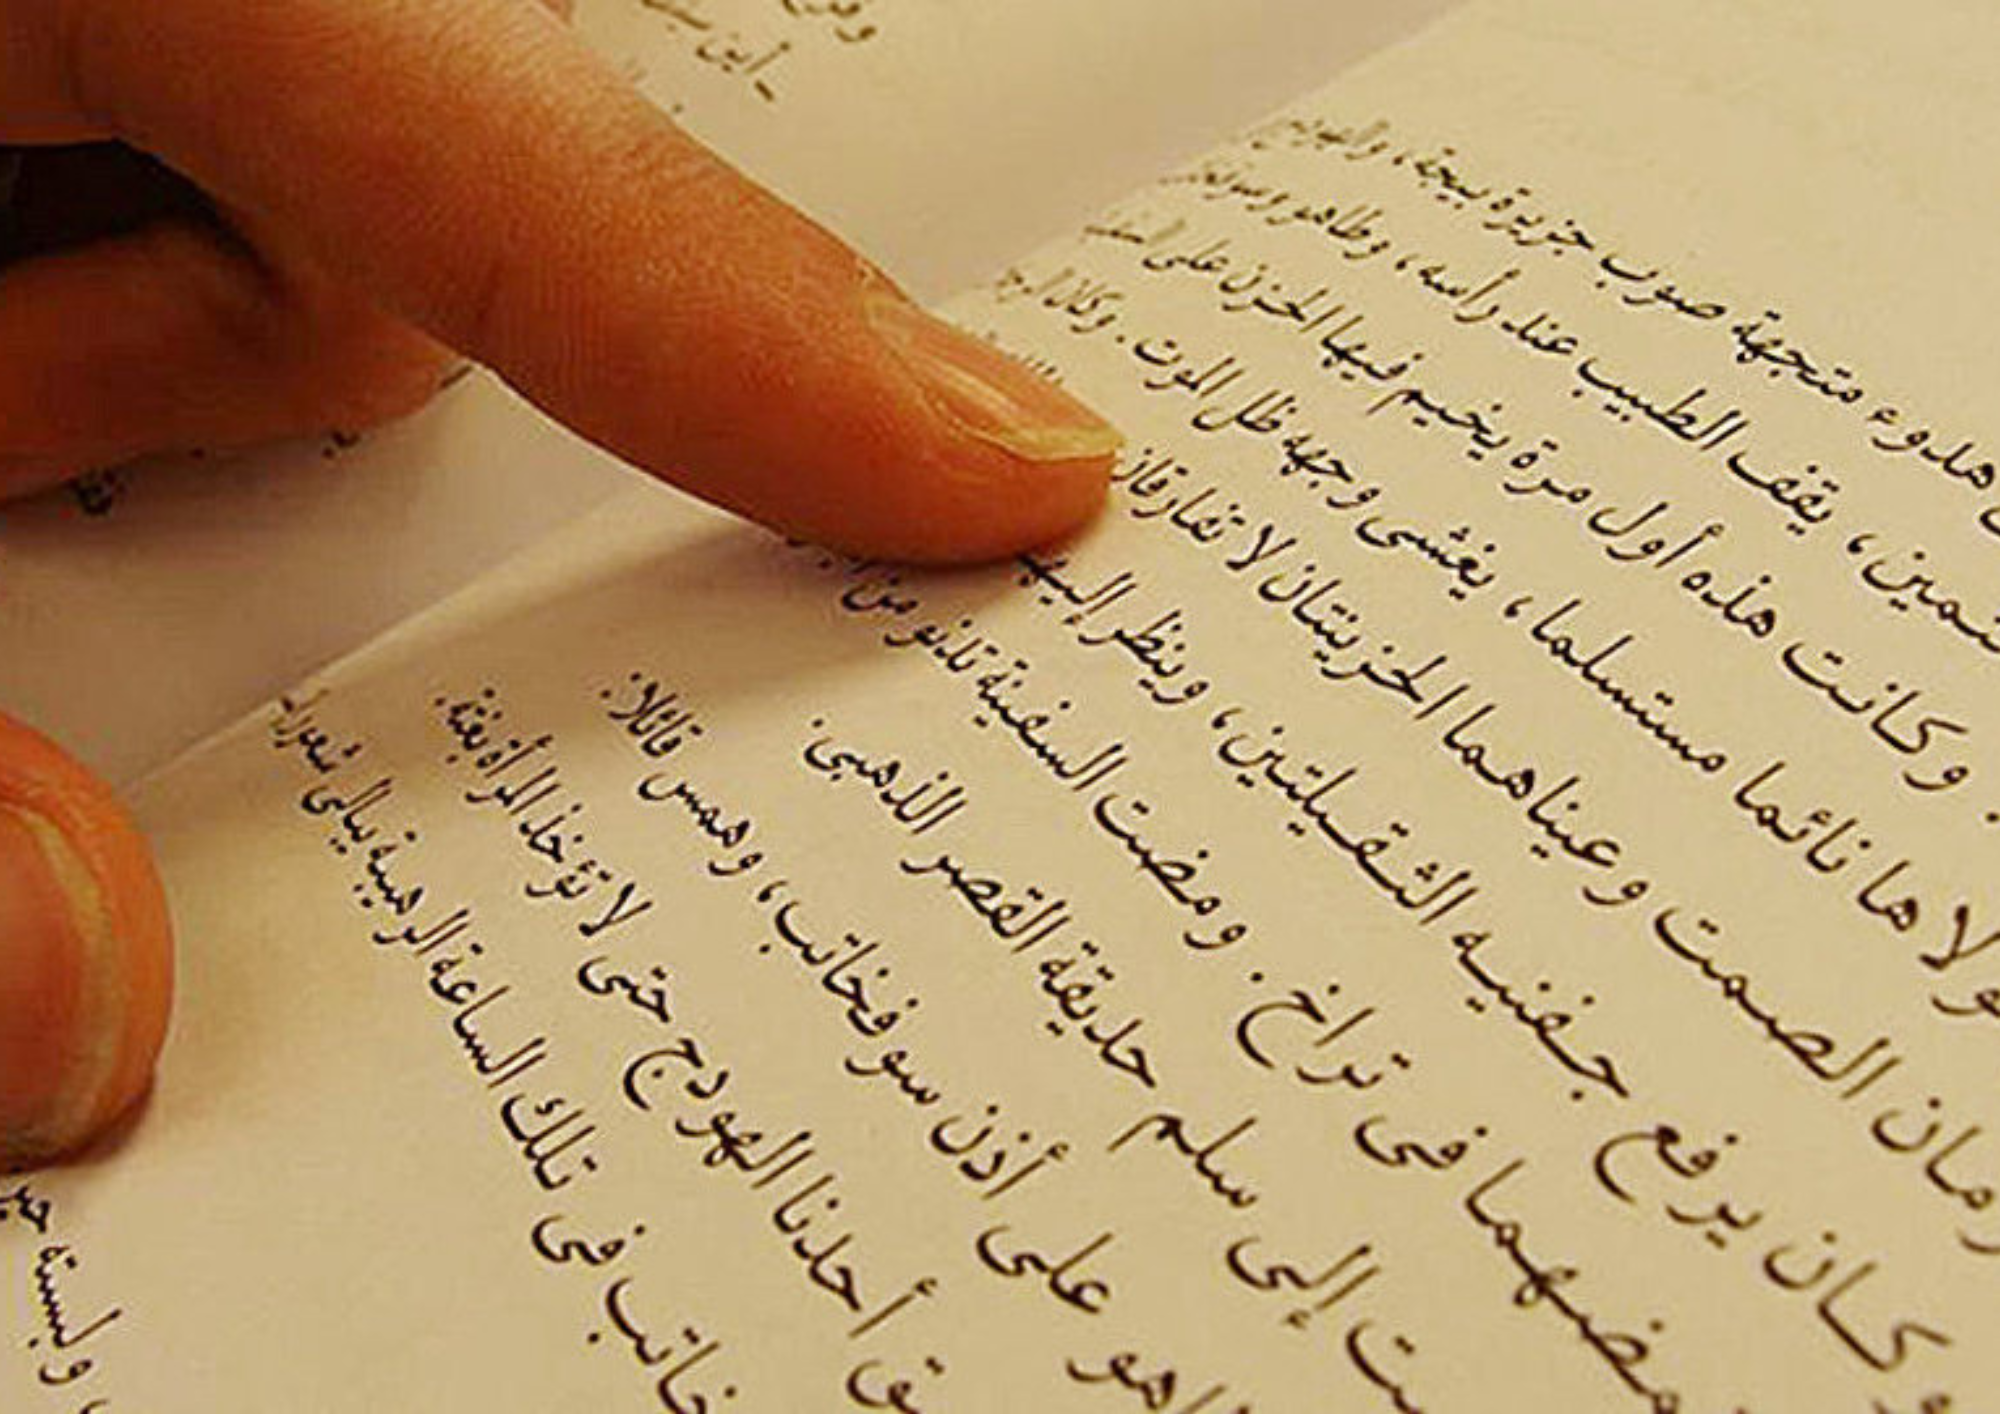 وفى
ـ أين
هدوء متجهة صوب جزيرة بيجة، وأجهزت
ـثمين، يقف الطبيب عند رأسه، وطاهو وسوفخا
. وكانت هذه أول مرة يخيم فيها الحزن على السفينة
ـولاها نائما مستسلما، يغشى وجهه ظل الموت. وكان الرجـ
ـزمان الصمت وعيناهما الحزينتان لا تفارقان
وكان يرفع جفنيه الثقيلتين، وينظر إليهـ
ـمضهما فى تراخ. ومضت السفينة تدنو من
ـت إلى سلم حديقة القصر الذهبى.
ـاهو على أذن سوفخاتب، وهمس قائلا:
ـق أحدنا الهودج حتى لا تؤخذ المرأة بغتة.
ـخاتب فى تلك الساعة الرهيبة يبالى شعور
ولبسته